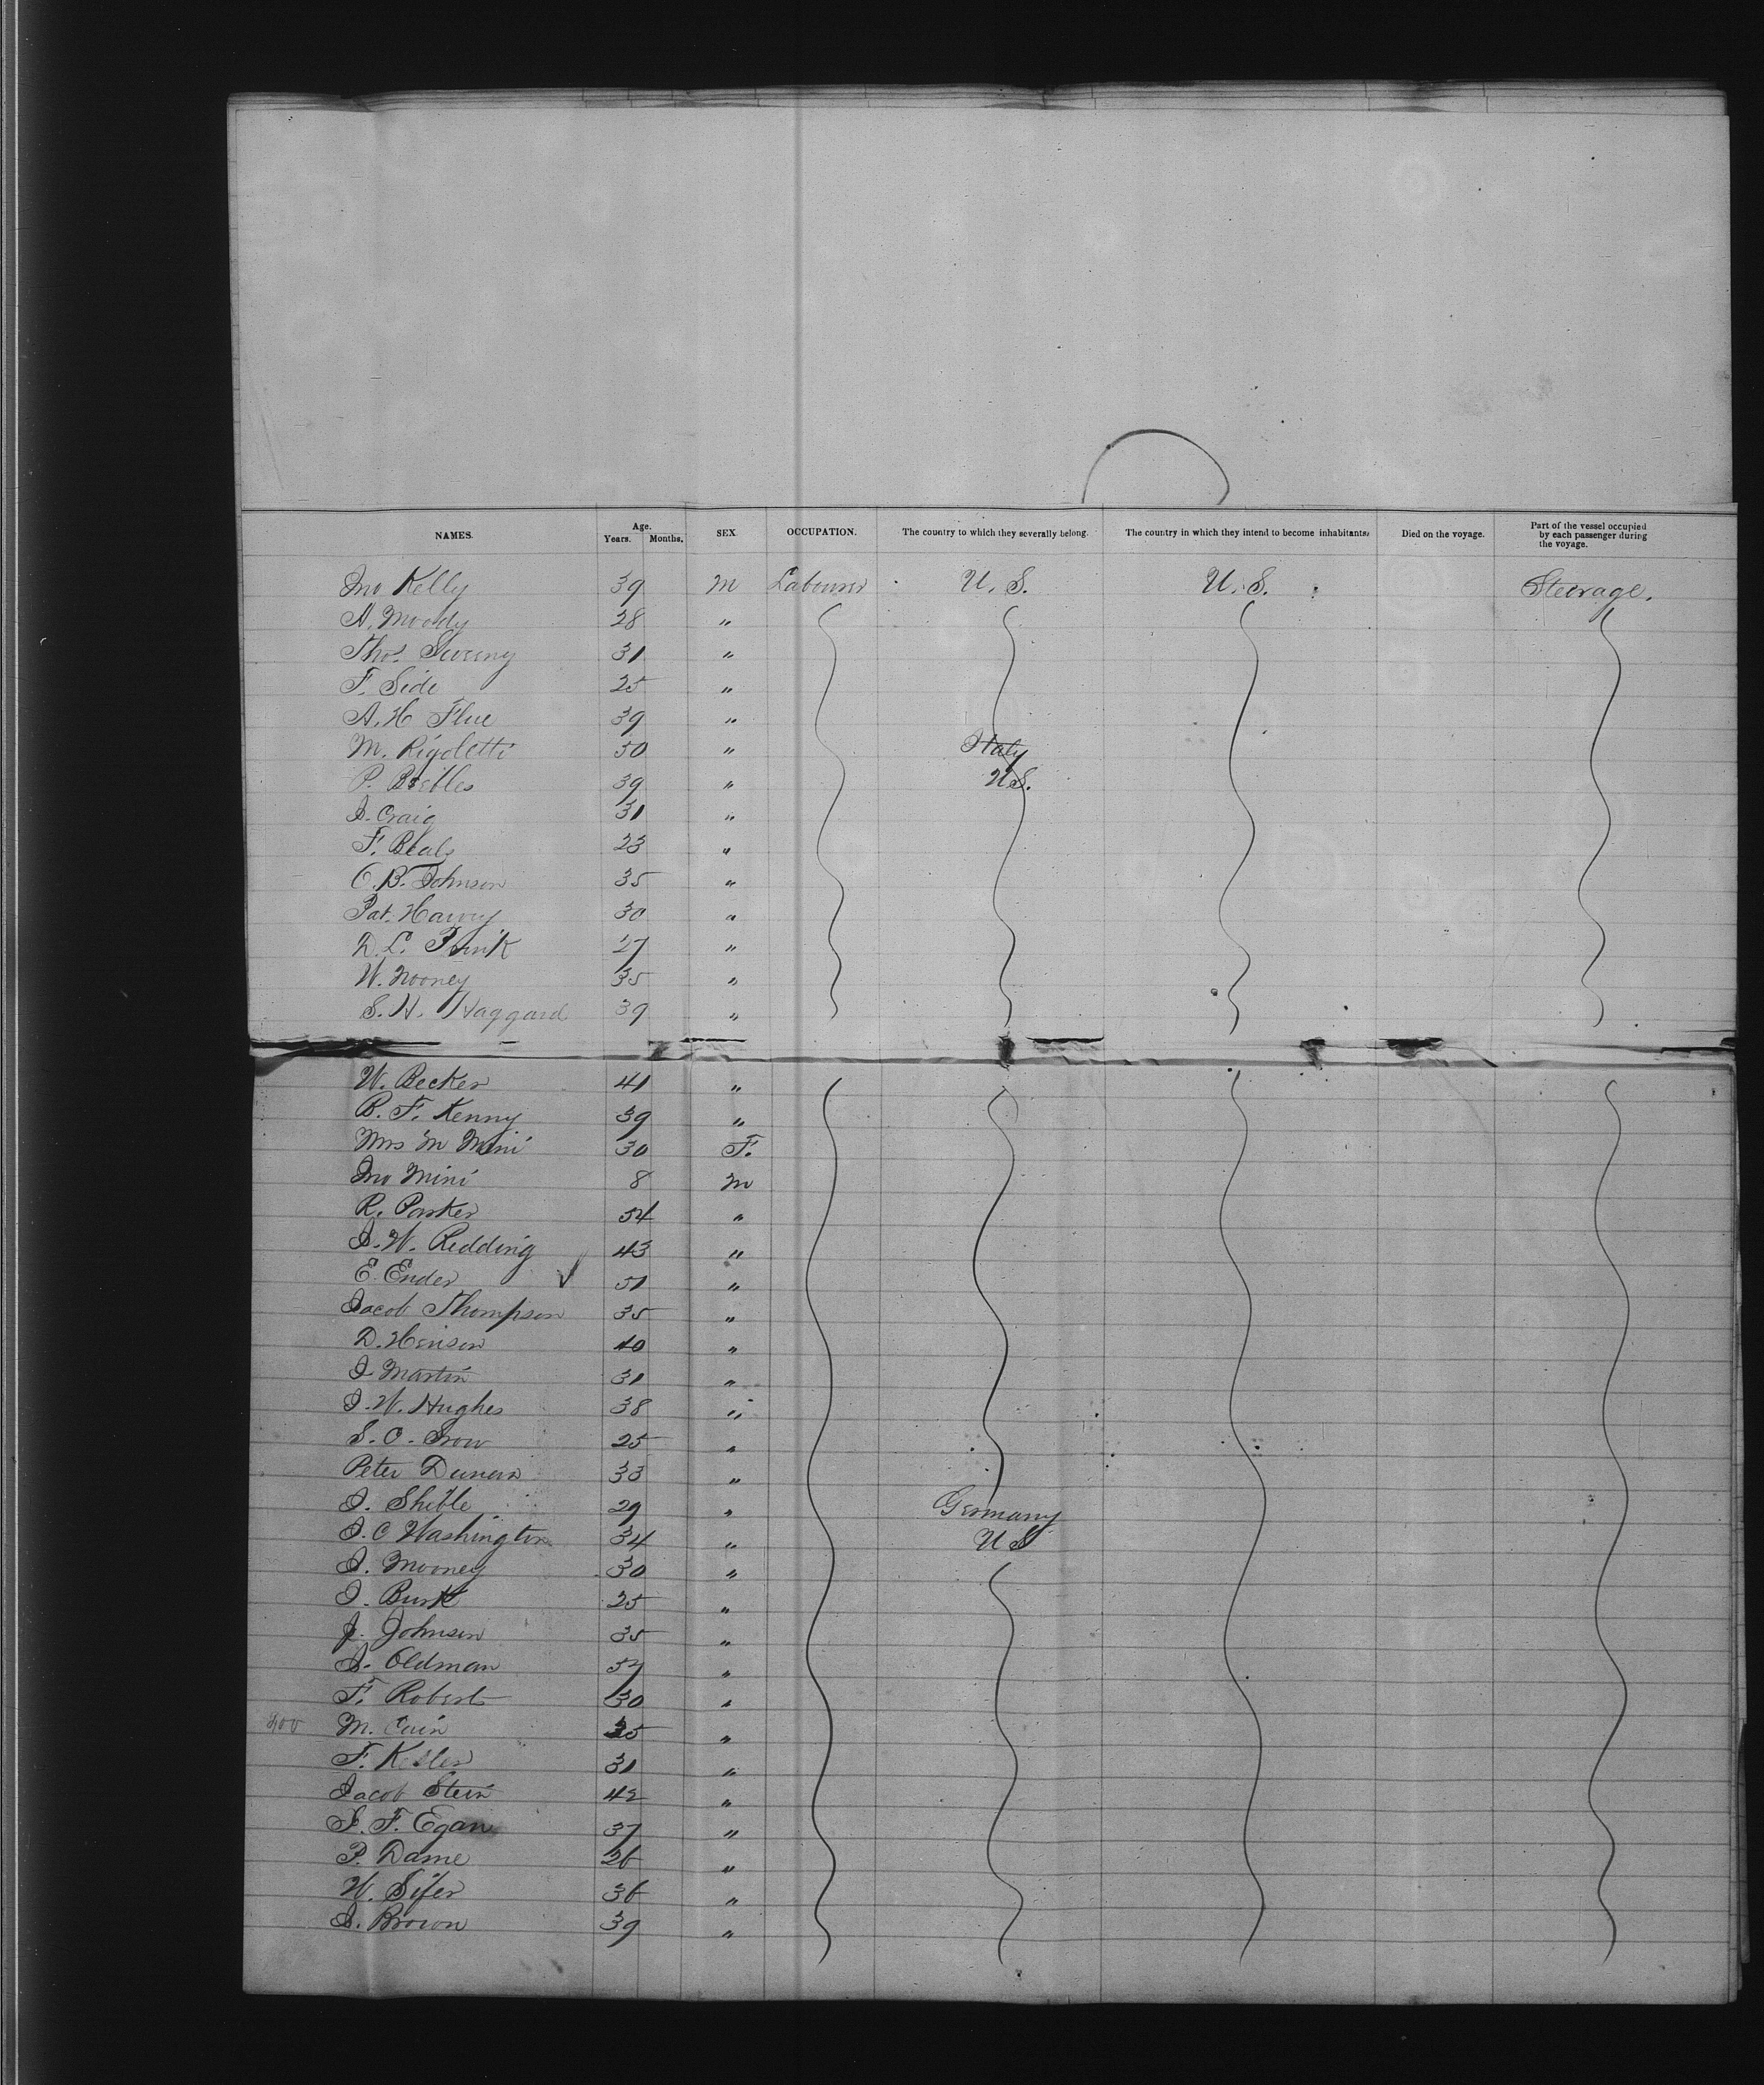 NAMES. Age. Years. Months. SEX OCCUPATION. The country to which they severally belong. The country in which they intend to become inhabitants. Died on the voyage. Part of the vessel occupied by each passenger during the voyage.
Jno Kelly 39 M Labourer U. S. U. S. Steerage.
A. Moody 28 "
Thos. Sweeny 31 "
F. Side 25 "
A. H Flue 39 "
M. Rigoletti 50 " Italy
P. Beebles 39 " U.S.
J. Craig 31 "
F. Beals 23 "
C. B. Johnson 35 "
Pat. Harvey 30 "
D. L. Funk 27 "
W. Nooney 35 "
S. H. Haggard 39 "
W. Becker 41 "
B. F. Kenny 39 "
Mrs M Mini 30 F.
Jno Mini 8 M
R. Parker 54 "
J. W. Redding 43 "
E. Ender 51 "
Jacob Thompson 35 "
D. Henison 40 "
J Martin 31 "
J. W. Hughes 38 "
S. C. Grow 25 "
Peter Duncan 33 "
J. Shible 29 " Germany
J. C Washington 34 " U S
J. Mooney 30 "
J. Burk 25 "
J. Johnson 35 "
J. Oldman 57 "
F. Roberts 30 "
400 M. Cain 25 "
F. Kesler 31 "
Jacob Stein 42 "
J. F. Egan 37 "
P. Dame 26 "
W. Sifer 36 "
J. Brown 39 "